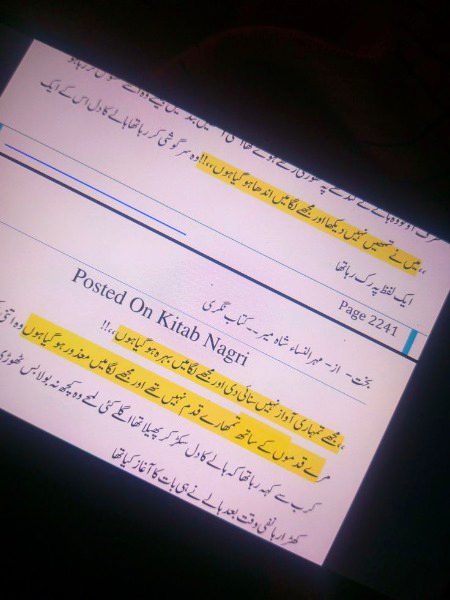 ،،میں نے تمہیں نہیں دیکھا اور مجھے لگا میں اندھا ہو گیا ہوں،،،!!وہ سرگوشی کر رہا تھا ہالے کا دل اس کے ایک
ایک لفظ پہ رک رہا تھا
Page 2241
بخت- از- مہرالنساء شاہ میر -- کتاب نگری
Posted On Kitab Nagri
،،مجھے تمہاری آواز نہیں سنائی دی اور مجھے لگا میں بہرہ ہو گیا ہوں،،،!!
مرے قدموں کے ساتھ تمہارے قدم نہیں تھے اور مجھے لگا میں معذور ہو گیا ہوں وہ اتنے
کرب سے کہہ رہا تھا کہ ہالے کا دل سکڑ کر پھیلا تھا اگلے کئی لمحے وہ کچھ نہ بولا بس تھوڑی
کھڑا رہا کافی وقت بعد ہالے نے ہی بات کا آغاز کیا تھا